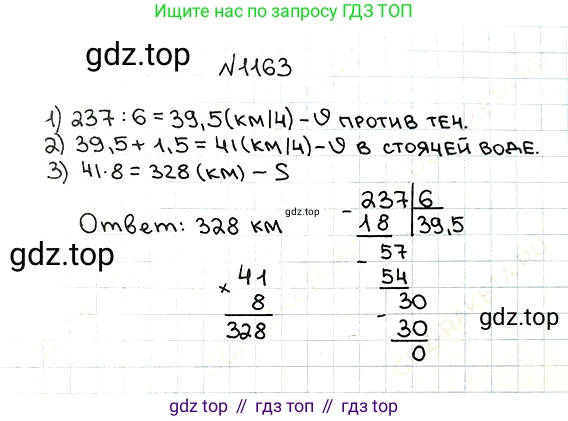 Ищите нас по запросу ГДЗ ТОП
gdz.top
№1163
1) 237 : 6 = 39,5 (км/ч) - υ против теч.
2) 39,5 + 1,5 = 41 (км/ч) - υ в стоячей воде.
3) 41 · 8 = 328 (км) - S
Ответ: 328 км
gdz.top
- 237 | 6
18 39,5
- 57
54
- 30
30
0
× 41
8
328
gdz.top
gdz.top
gdz.top // гдз топ // гдз.топ